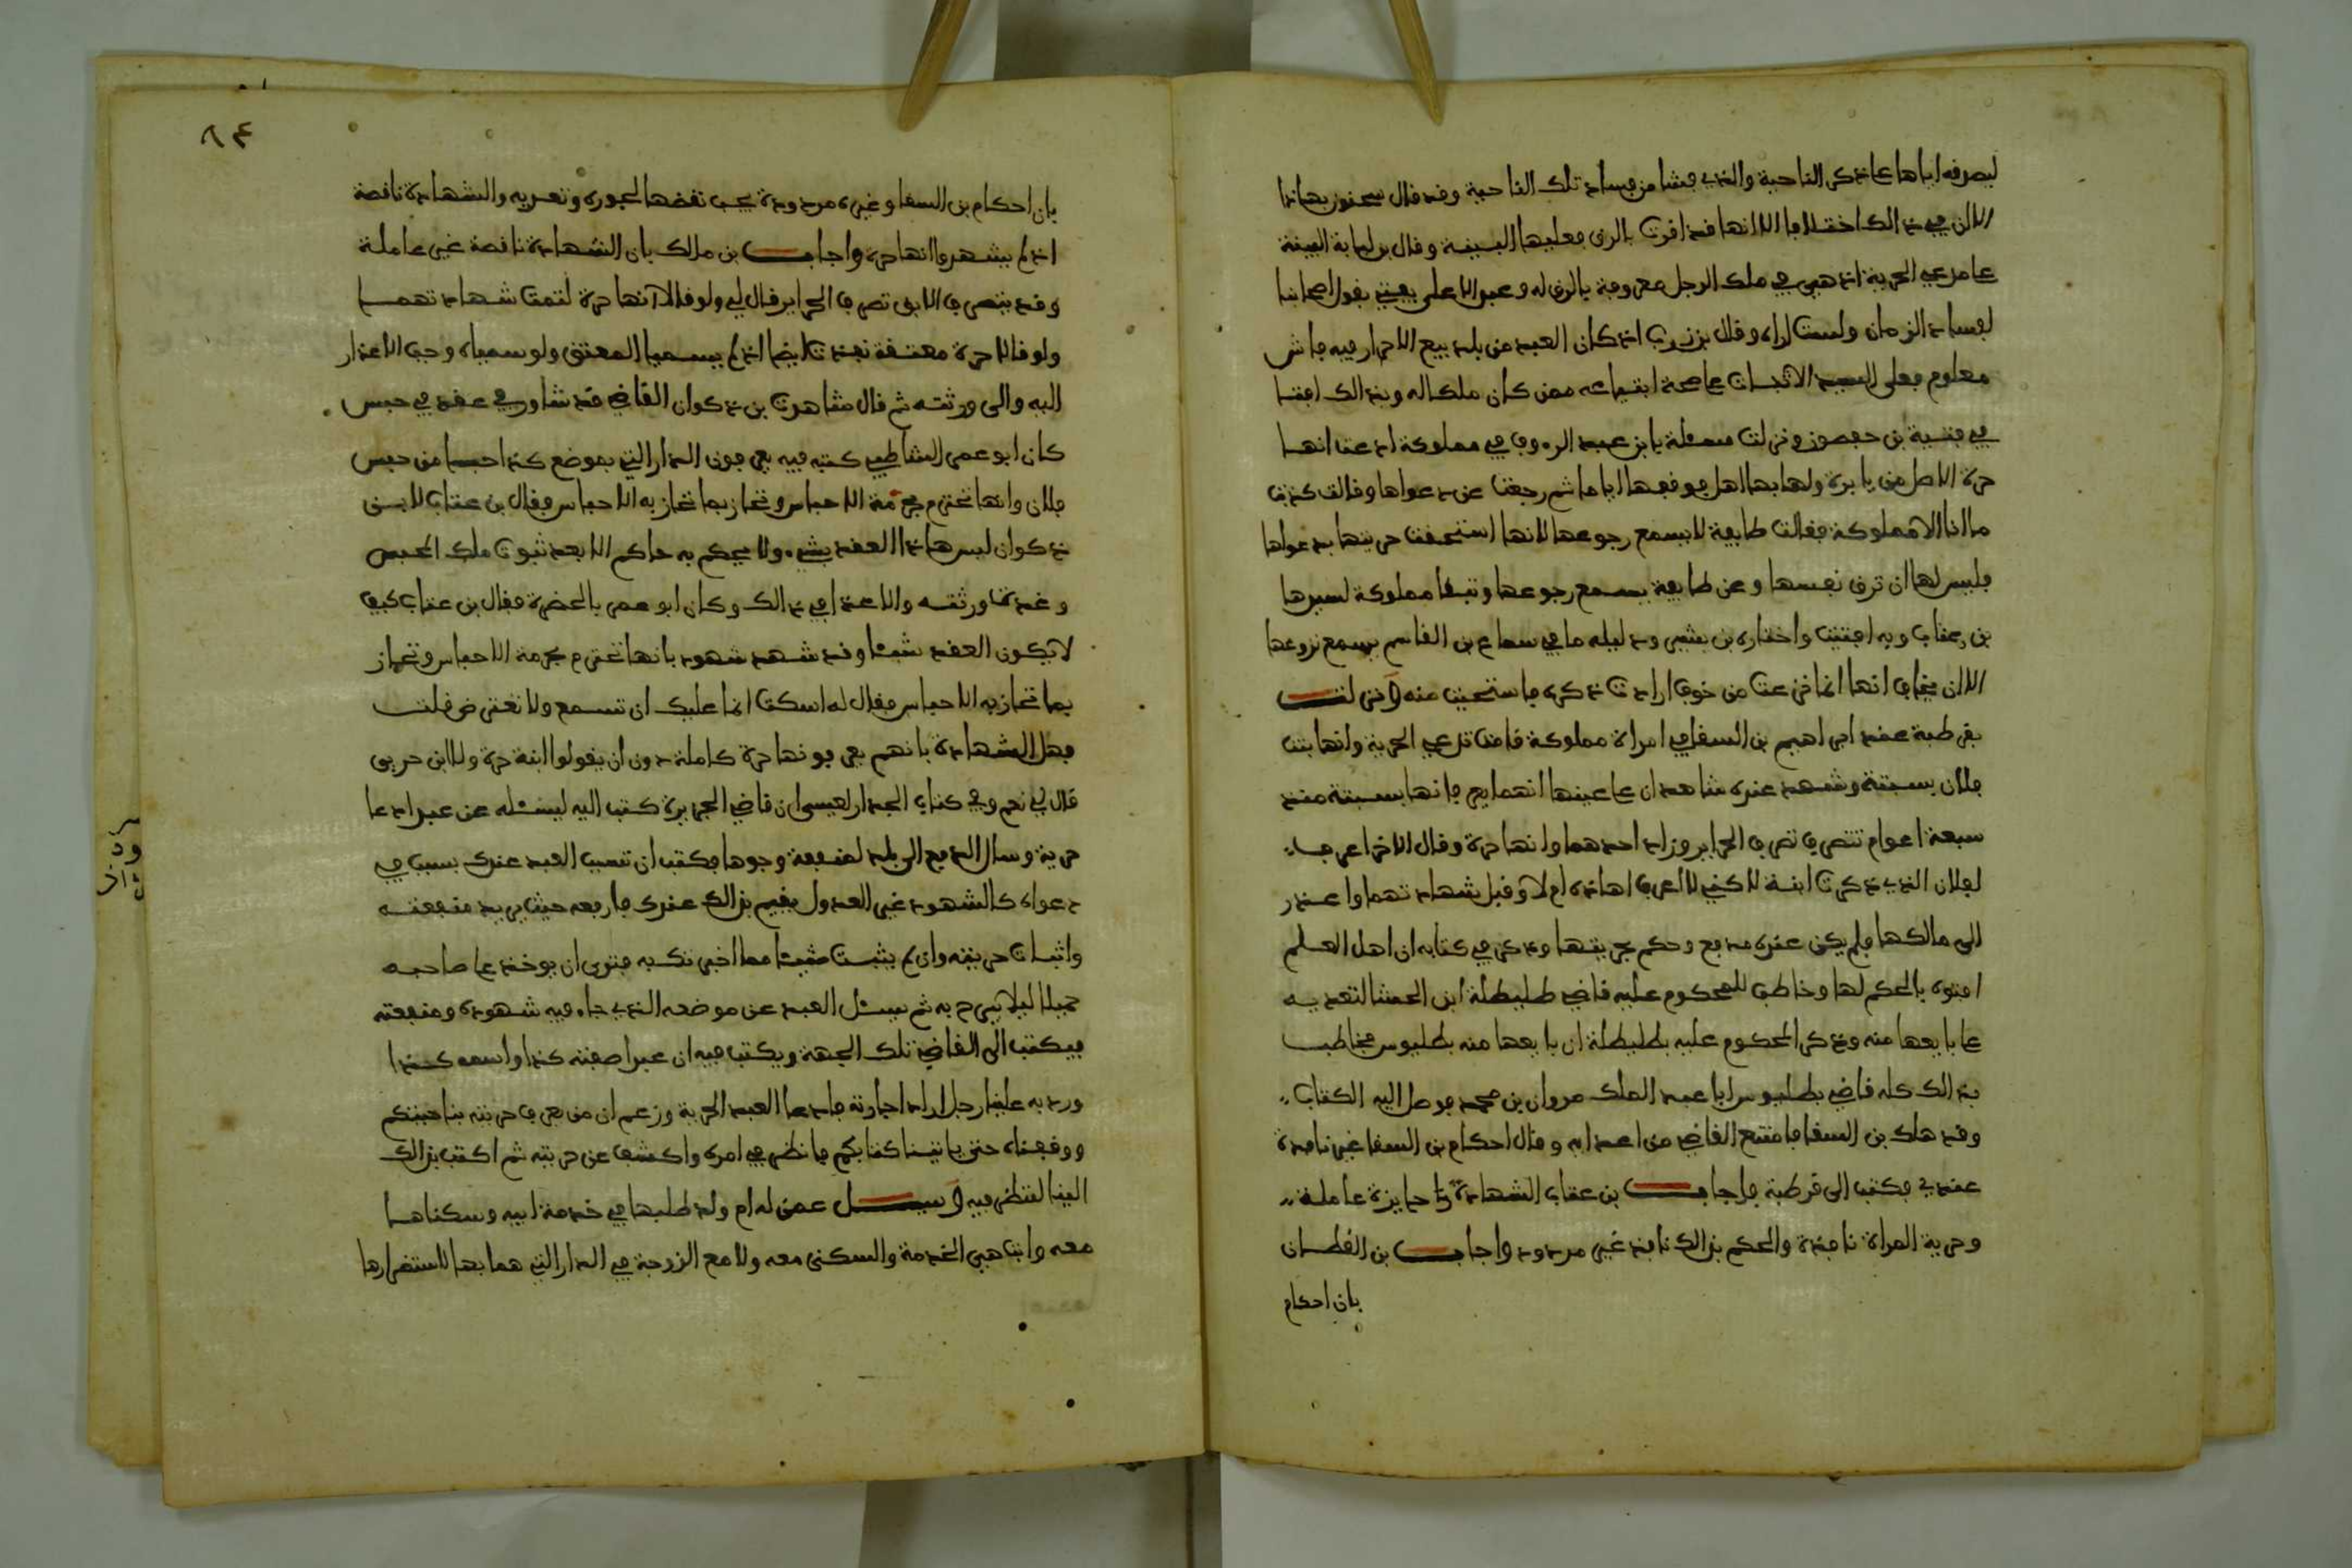 ليصرفه اياها عما ذكر الناحية والذي فشا من فساد تلك الناحية وقد قال سحنون بهاذا
الا ان في ذالك اختلافا الا انها قد اقرت بالرق فعليها البينة وقال بن لبابة البينة
على مدعي الحرية اذ هي في ملك الرجل معروفة بالرق له وعبد الاعلى يفتي بقول اصحابنا
لفساد الزمان ولست اراه وقال بن زرب اذ كان العبد من بلد بيع الاحرار فيه فاش
معلوم فعلى السيد الاثبات على صحة ابتياعه ممن كان ملكا له وبذالك افتا
في فتية بن حفصون ونزلت مسئلة يا بن عبد الرءوف في مملوكة ادعت انها
حرة الاصل من يابرة ولها بها اهل فوقفها اياما ثم رجعت عن دعواها وقالت كذبت
ما انا الا مملوكة فقالت طايفة لا يسمع رجوعها لانها استحقت حريتها بدعواها
فليس لها ان ترق نفسها وعن طايفة يسمع رجوعها وتبقا مملوكة لسيدها
بن عتاب وبه افتيت واختاره بن بشير ودليله ما في سماع بن القاسم يسمع نزوعها
الا ان يخاف انها انما نزعت من خوف ارادت ذكره فاستحيت منه ونزلت
بقرطبة عند ابراهيم بن السقا في امراة مملوكة قامت تدعي الحرية وانها بنت
فلان بسبتة وشهد عنده شاهدان على عينها انهما يعرفانها بسبتة منذ
سبعة اعوام تتصرف تصرف الحراير وزاد احدهما وانها حرة وقال الاخر اعرف
لفلان الذي ذكرت ابنة لاكني لا اعرف اهاذه ام لا وقبل شهادتهما واعذر
الى مالكها فلم يكن عنده مدفع وحكم بحريتها وذكر في كتابه ان اهل العلم
افتوه بالحكم لها وخاطب للمحكوم عليه قاضي طليطلة ابن الحشا لتعديه
على بايعها منه وذكر المحكوم عليه بطليطلة ان بايعها منه بطليوس فخاطب
بذالك كله قاضي بطليوس ابا عبد الملك مروان بن محمد فوصل اليه الكتاب
وقد هلك بن السقا فامتنع القاضي من اعدايه وقال احكام بن السقا غير نافذة
عندي فكتب الى قرطبة فاجاب بن عتاب الشهادة جايزة عاملة
وحرية المراة نافذة والحكم بذالك نافذ غير مردود واجاب بن القطان
بان احكام
٨٤
بان احكام بن السقا وغيره مردودة يجب نقضها لجوره وتعديه والشهادة ناقصة
اذ لم يشهدوا انها حرة واجاب بن مالك بان الشهادة ناقصة غير عاملة
وقد يتصرف الابق تصرف الحراير قال لي ولو قالا انها حرة لتمت شهادتهما
ولو قالا حرة معتقة نفذت ايضا اذ لم يسميا المعتق ولو سمياه وجب الاعذار
اليه والى ورثته ثم قال شاهدت بن ذكوان القاضي قد شاور في عقد في حبس
كان ابو عمر الشاطبي كتبه فيه يعرفون الدار التي بموضع كذا احبسا من حبس
فلان وانها تحترم بحرمة الاحباس وتحاز بما تحاز به الاحباس فقال بن عتاب لابن
ذكوان ليس هاذا العقد بشيء ولا يحكم به حاكم الا بعد ثبوت ملك المحبس
وعدة ورثته والاعذار في ذالك وكان ابو عمر بالحضرة فقال بن عتاب كيف
لا يكون العقد شيئا وقد شهد شهود بانها تحترم بحرمة الاحباس وتحاز
بما تحاز به الاحباس فقال له اسكت انما عليك ان تسمع ولا تعترض قلت
فهل الشهادة بانهم يعرفونها حرة كاملة دون ان يقولوا ابنة حرة ولا ابن حرين
قال لي نعم وفي كتاب الجدار لعيسى ان قاضي الجزيرة كتب اليه ليسئله عن عبد ادعا
حرية وسال الدفع الى بلد لمنفعة وجوها فكتب ان تسبب العبد عندك بسبب في
دعواه كالشهود غير العدول يقيم بذالك عندك فارفعه حيث يريد منفعته
واثبات حريته وان لم يثبت شيئا مما اخبرتك به فترى ان يوخذ على صاحبه
حميلا ليلا يبرح به ثم يسئل العبد عن موضعه الذي جاء فيه شهوده ومنفعته
فيكتب الى القاضي تلك الجهة ويكتب فيه ان عبدا صفته كذا واسمه كذا
ورد به علينا رجل اراد اجازته فادعا العبد الحرية وزعم ان من يعرف حريته بناحيتكم
ووقفناه حتى ياتينا كتابكم فانظر في امره واكشف عن حريته ثم اكتب بذالك
الينا لننظر فيه وسئل عمن له ام ولد طلبها في خدمة ابيه وسكناها
معه وابت هي الخدمة والسكنى معه ولا مع الزوجة في الدار التي هما بها لاستضرارها